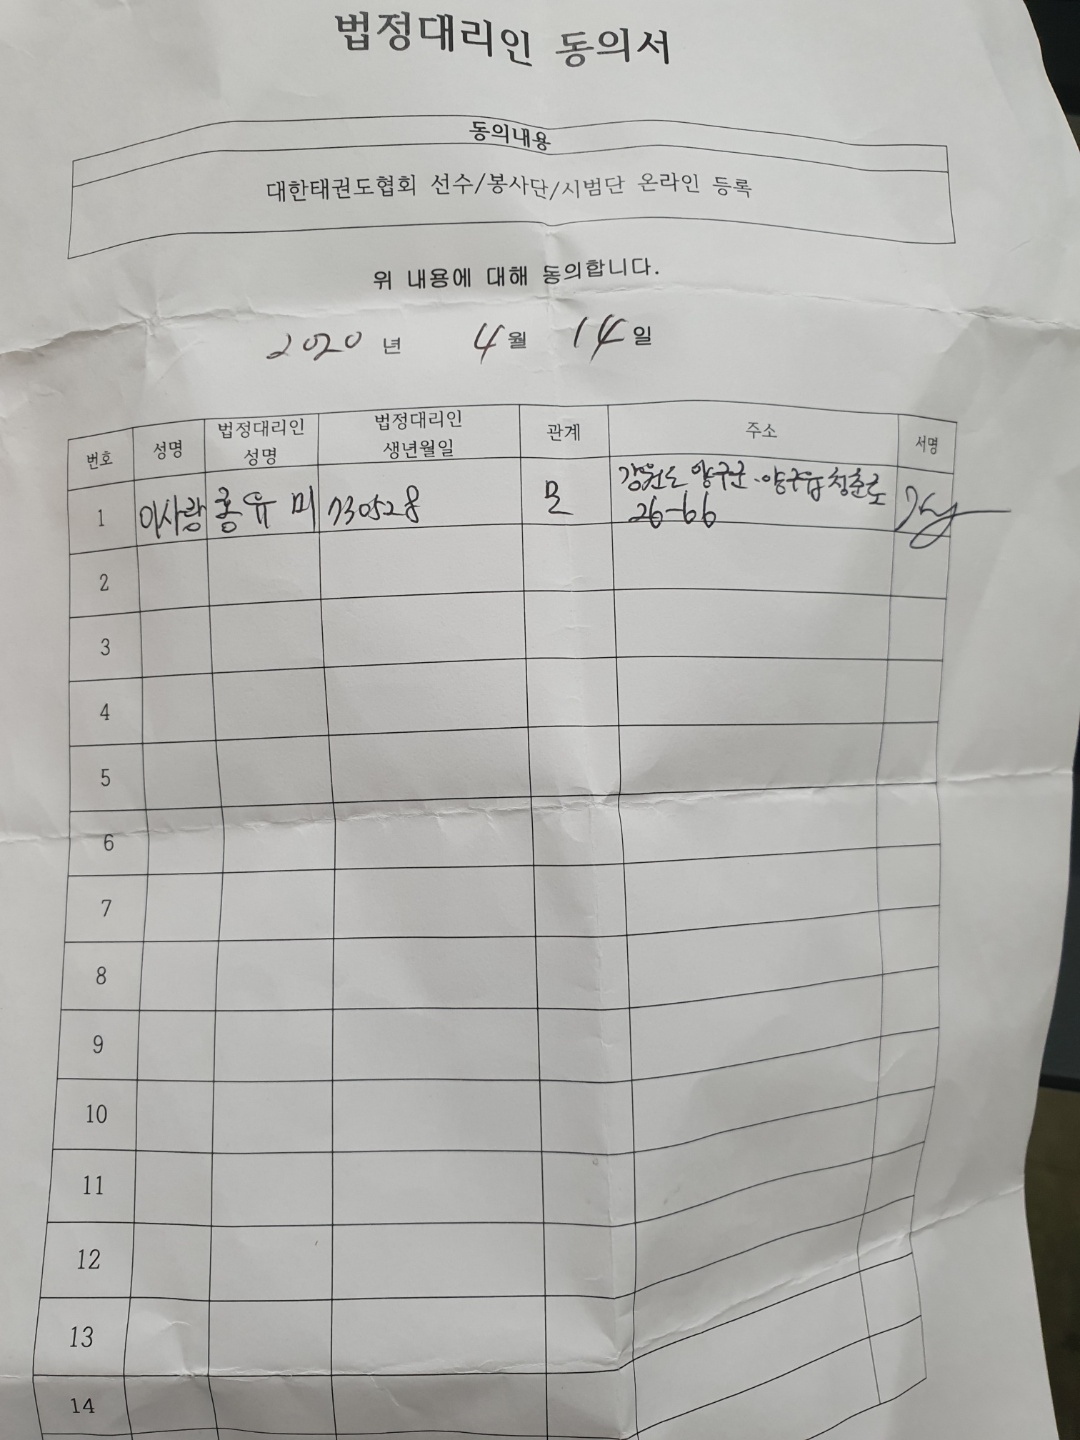 법정대리인 동의서
동의내용
대한태권도협회 선수/봉사단/시범단 온라인 등록
위 내용에 대해 동의합니다.
2020 년 4월 14일
번호 성명 법정대리인 성명 법정대리인 생년월일 관계 주소 서명
1 이사랑 홍유미 730528 모 강원도 양구군 양구읍 청춘로
26-66
2
3
4
5
6
7
8
9
10
11
12
13
14